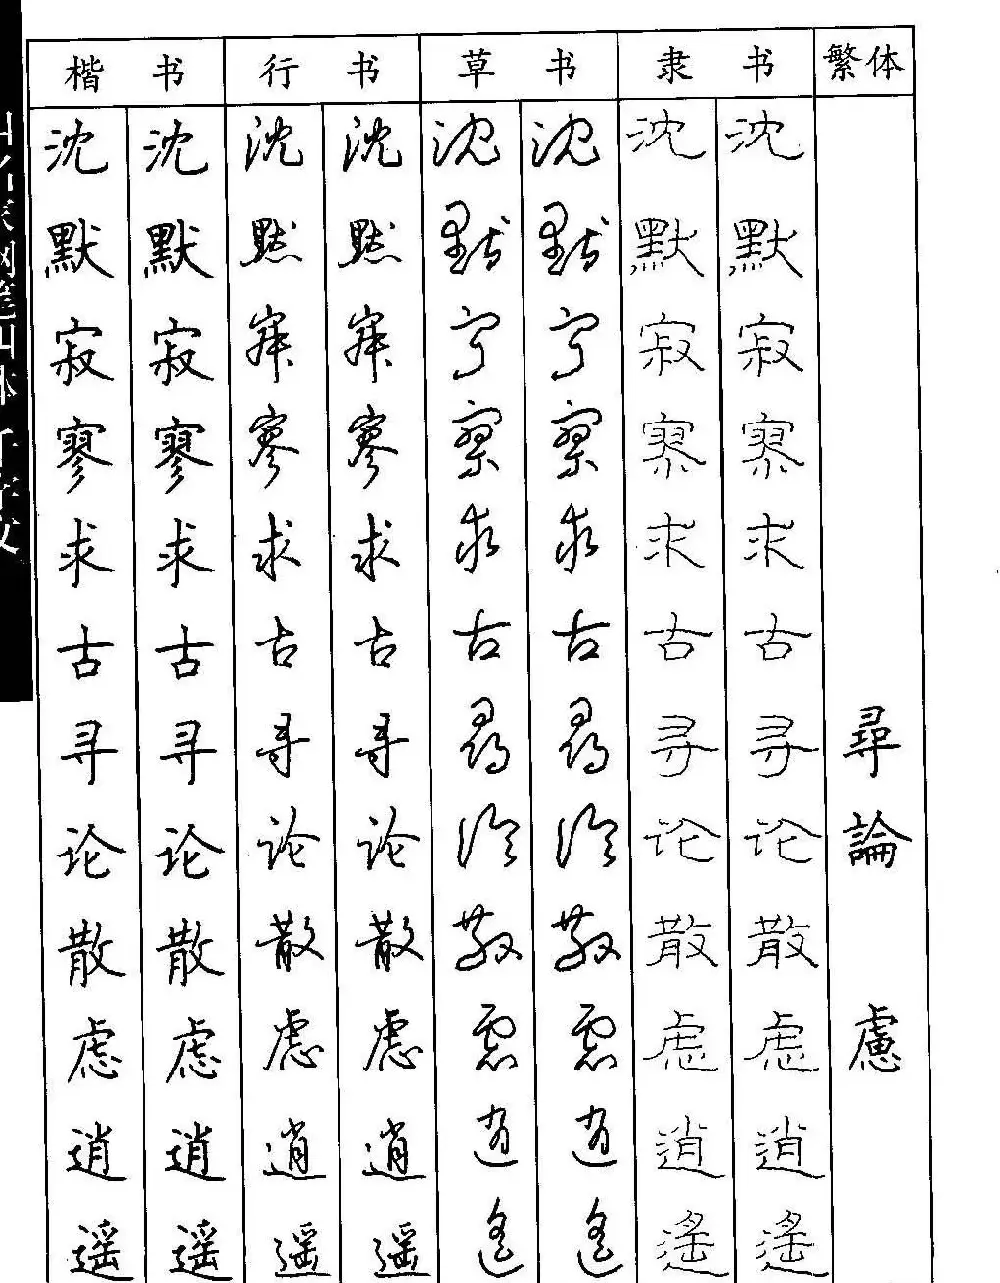 楷书 行书 草书 隶书 繁体
沈 沈 沈 沈 沈 沈 沈 沈
默 默 默 默 默 默 默 默
寂 寂 寂 寂 寂 寂 寂 寂
寥 寥 寥 寥 寥 寥 寥 寥
求 求 求 求 求 求 求 求
古 古 古 古 古 古 古 古
寻 寻 寻 寻 寻 寻 寻 寻 尋
论 论 论 论 论 论 论 论 論
散 散 散 散 散 散 散 散
虑 虑 虑 虑 虑 虑 虑 虑 慮
逍 逍 逍 逍 逍 逍 逍 逍
遥 遥 遥 遥 遥 遥 遥 遥
千字文